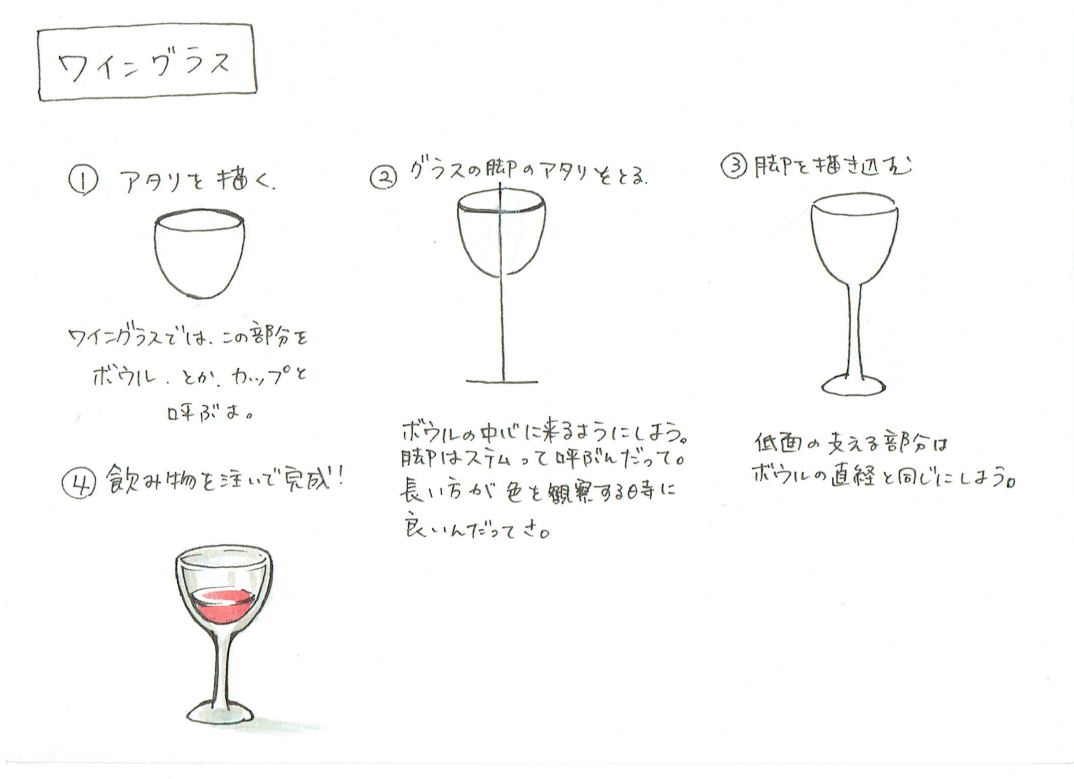 ワイングラス
① アタリを描く.
ワイングラスでは、この部分を
ボウル、とか、カップと
呼ぶよ。
② グラスの脚のアタリをとる.
ボウルの中心に来るようにしよう。
脚はステムって呼ぶんだって。
長い方が色を観察する時に
良いんだってさ。
③ 脚を描き込む
低面の支える部分は
ボウルの直経と同じにしよう。
④ 飲み物を注いで完成!!